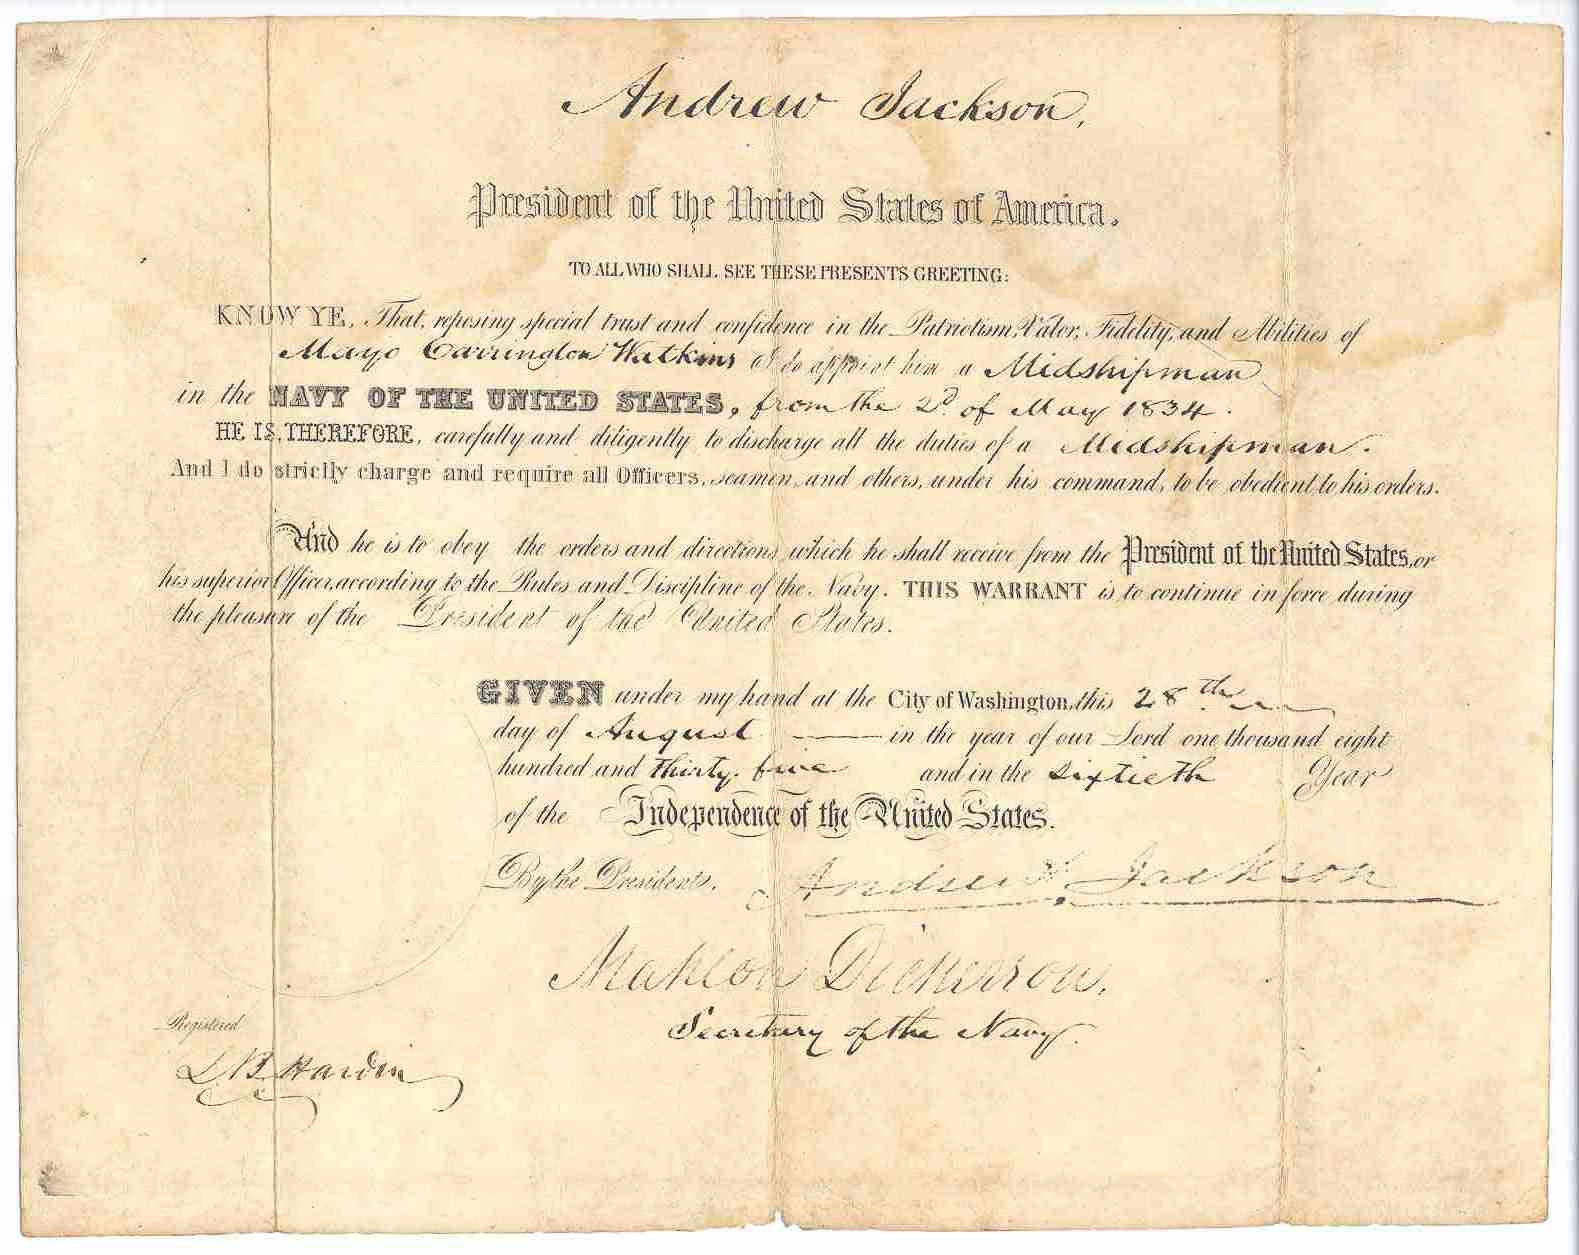 Andrew Jackson,
President of the United States of America.
TO ALL WHO SHALL SEE THESE PRESENTS GREETING:
KNOW YE, That, reposing special trust and confidence in the Patriotism, Valor, Fidelity, and Abilities of
Mayo Carrington Watkins I do appoint him a Midshipman
in the NAVY OF THE UNITED STATES, from the 2d. of May 1834.
HE IS, THEREFORE, carefully and diligently to discharge all the duties of a Midshipman.
And I do strictly charge and require all Officers, seamen, and others, under his command, to be obedient to his orders.
And he is to obey the orders and directions which he shall receive from the President of the United States, or
his superior Officer, according to the Rules and Discipline of the Navy. THIS WARRANT is to continue in force during
the pleasure of the President of the United States.
GIVEN under my hand at the City of Washington, this 28th
day of August — in the year of our Lord one thousand eight
hundred and thirty five and in the sixtieth Year
of the Independence of the United States.
By the Presidents. Andrew Jackson
Mahlon Dickerson,
Secretary of the Navy.
Registered
L B Hardin